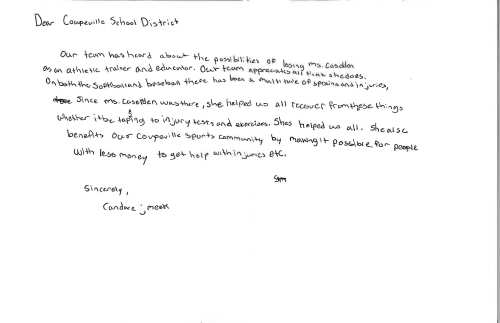 Dear Coupeville School District
Our team has heard about the possibilities of losing ms. Casellen
as an athletic trainer and educator. Our team appreciates all that she does.
On both the Softball and baseball there has been a multitude of sprains and injuries,
Since ms. Casellen was there, she helped us all recover from these things
whether it be taping to injury tests and exercises. Shes helped us all. She also
benefits our Coupeville sports community by making it possible for people
with less money to get help with injuries etc.
Sincerely,
Candace meek